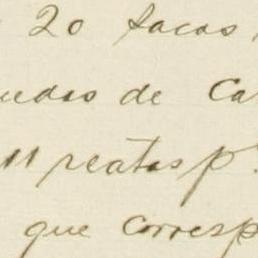 20 sacos
uedas de Ca
11 reatas p.
que corresp